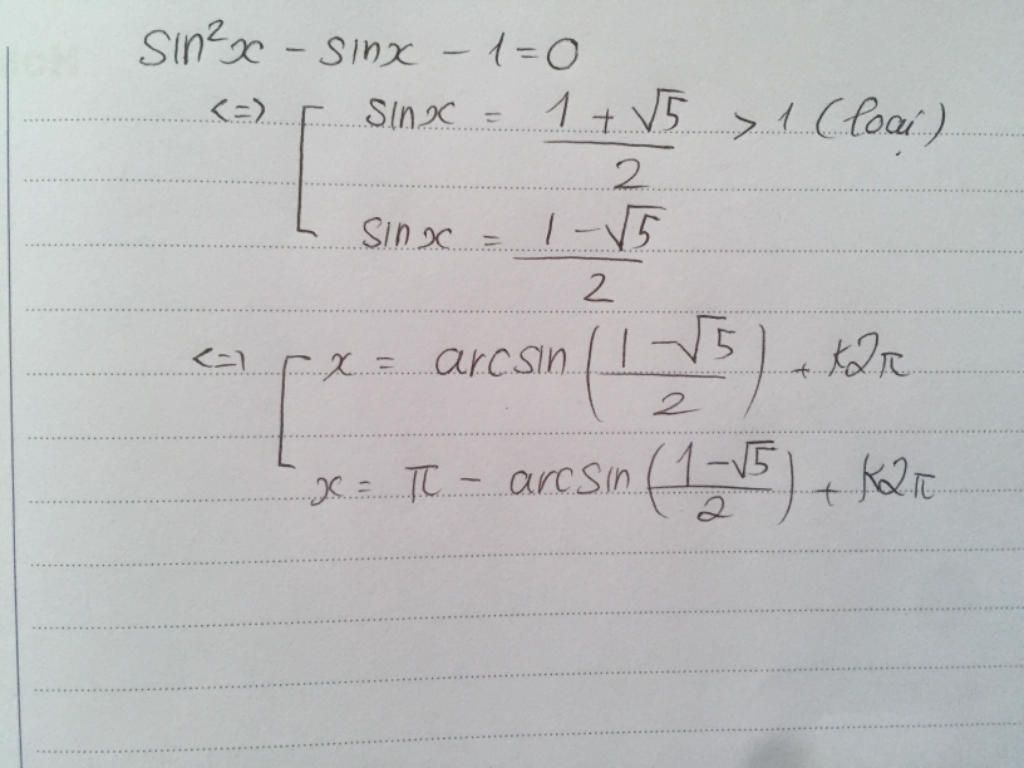 sin²x - sinx - 1 = 0
<=> [ sinx = (1 + √5)/2 > 1 (loại)
sinx = (1 - √5)/2
<=> [ x = arcsin((1 - √5)/2) + k2π
x = π - arcsin((1 - √5)/2) + k2π